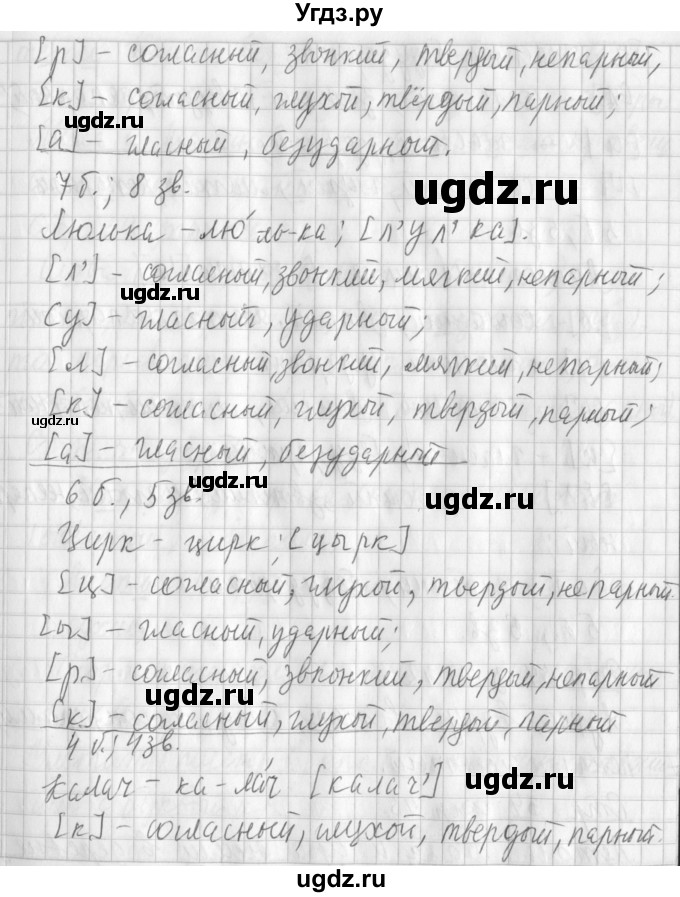 Угдз.ру
[р] – согласный, звонкий, твердый, непарный,
[к] – согласный, глухой, твёрдый, парный;
ugdz.ru
[а] – гласный, безударный.
7 б.; 8 зв.
ugdz.ru
Люлька – лю́ль-ка; [л'ул'ка].
[л'] – согласный, звонкий, мягкий, непарный;
ugdz.ru
[у] – гласный, ударный;
ugdz.ru
[л] – согласный, звонкий, мягкий, непарный;
[к] – согласный, глухой, твердый, парный;
ugdz.ru
[а] – гласный, безударный
6 б., 5 зв.
ugdz.ru
ugdz.ru
Цирк – цирк; [цырк]
[ц] – согласный, глухой, твердый, непарный.
[ы] – гласный, ударный;
ugdz.ru
[р] – согласный, звконкий, твердый, непарный
ugdz.ru
[к] – согласный, глухой, твердый, парный
4 б.; 4 зв.
Калач – ка-ла́ч [калач']
ugdz.ru
[к] – согласный, глухой, твердый, парный.
ugdz.ru
ugdz.ru